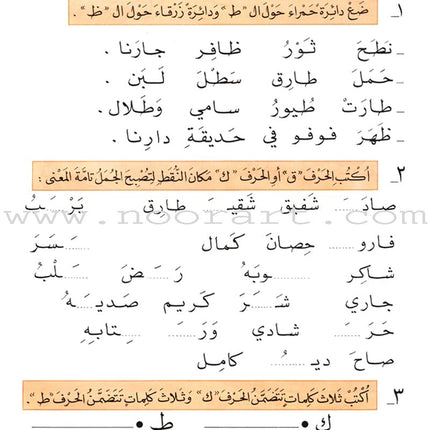 ١_ ضَعْ دائِرَة حَمْراءَ حَوْلَ ال "ط" وَدائِرَة زَرْقاءَ حَوْلَ ال "ظ" .
_ نَطَحَ ثَوْرُ ظافِر جارَنا .
_ حَمَلَ طارِق سَطْلَ لَبَن .
_ طارَتْ طُيورُ سامي وَطَلال .
_ ظَهَرَ فوفو في حَديقَةِ دارِنا .
٢_ أكْتُبُ الحَرْفَ "ق" أو الحَرْفَ "ك" مَكانَ النُّقَطِ لِتُصْبِحَ الجُمَلُ تامَّةَ المَعْنى :
صادَ.... شَفيق شَقيـ.... طارِق بَرْ....ـبُ
www.noorart.com
فارو.... حِصانَ كَمال ....َسَرَ
شاكِر ....وبَهُ رَ....َضَ ....َلْبُ
جاري شَـ....َرَ كَريم صَديـ....ـهُ
حَرَ.... شادي وَرَ.... ....ِتابِهِ
صاحَ ديـ....ُ كامِل
٣_ أُكْتُبْ ثَلاثَ كَلِماتٍ تَتَضَمَّنُ الحَرْفَ "ك" وَثَلاثَ كَلِماتٍ تَتَضَمَّنُ الحَرْفَ "ط" .
ك • ط •